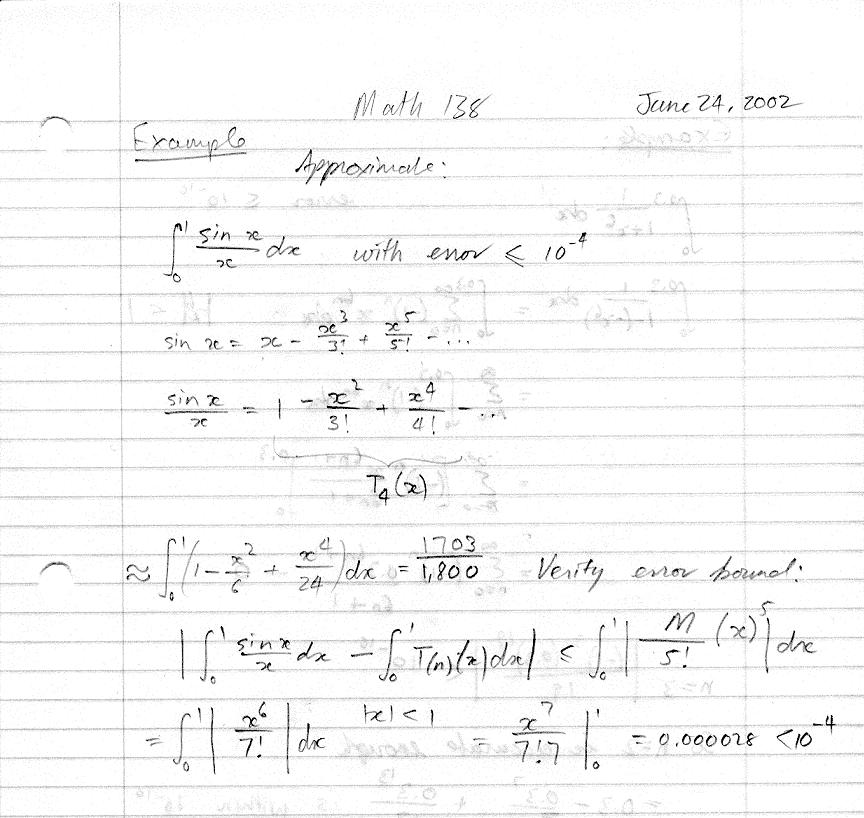 Math 138 June 24, 2002
Example
Approximate:
∫₀¹ sin x / x dx with error ≤ 10⁻⁴
sin x = x − x³/3! + x⁵/5! − ...
sin x / x = 1 − x²/3! + x⁴/4! − ...
T₄(x)
≈ ∫₀¹ (1 − x²/6 + x⁴/24) dx = 1703/1,800 Verify error bound:
| ∫₀¹ sin x / x dx − ∫₀¹ T(n)(x) dx | ≤ ∫₀¹ | M/5! (x)⁵ | dx
= ∫₀¹ | x⁶/7! | dx |x| < 1 = x⁷/7!7 |₀¹ = 0.000028 < 10⁻⁴